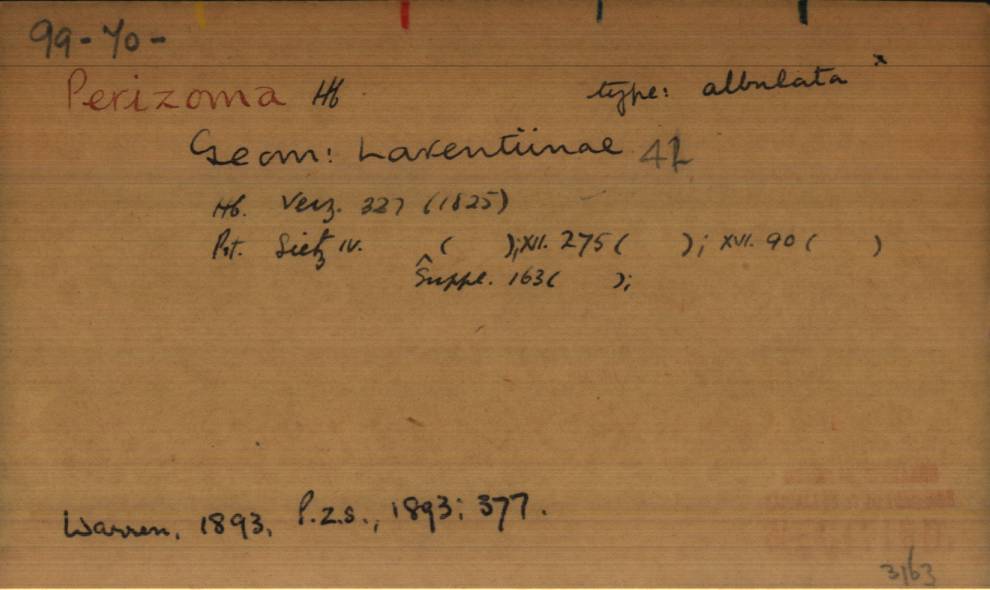 99-70-
Perizoma Hb type: albulata x
Geom: Larentiinae 42
Hb. Verz. 327 (1825)
Prt. Seitz IV. ( ); XII. 275 ( ); XVI. 90 ( )
Suppl. 163 ( );
Warren, 1893, P.Z.S., 1893: 377.
3/63